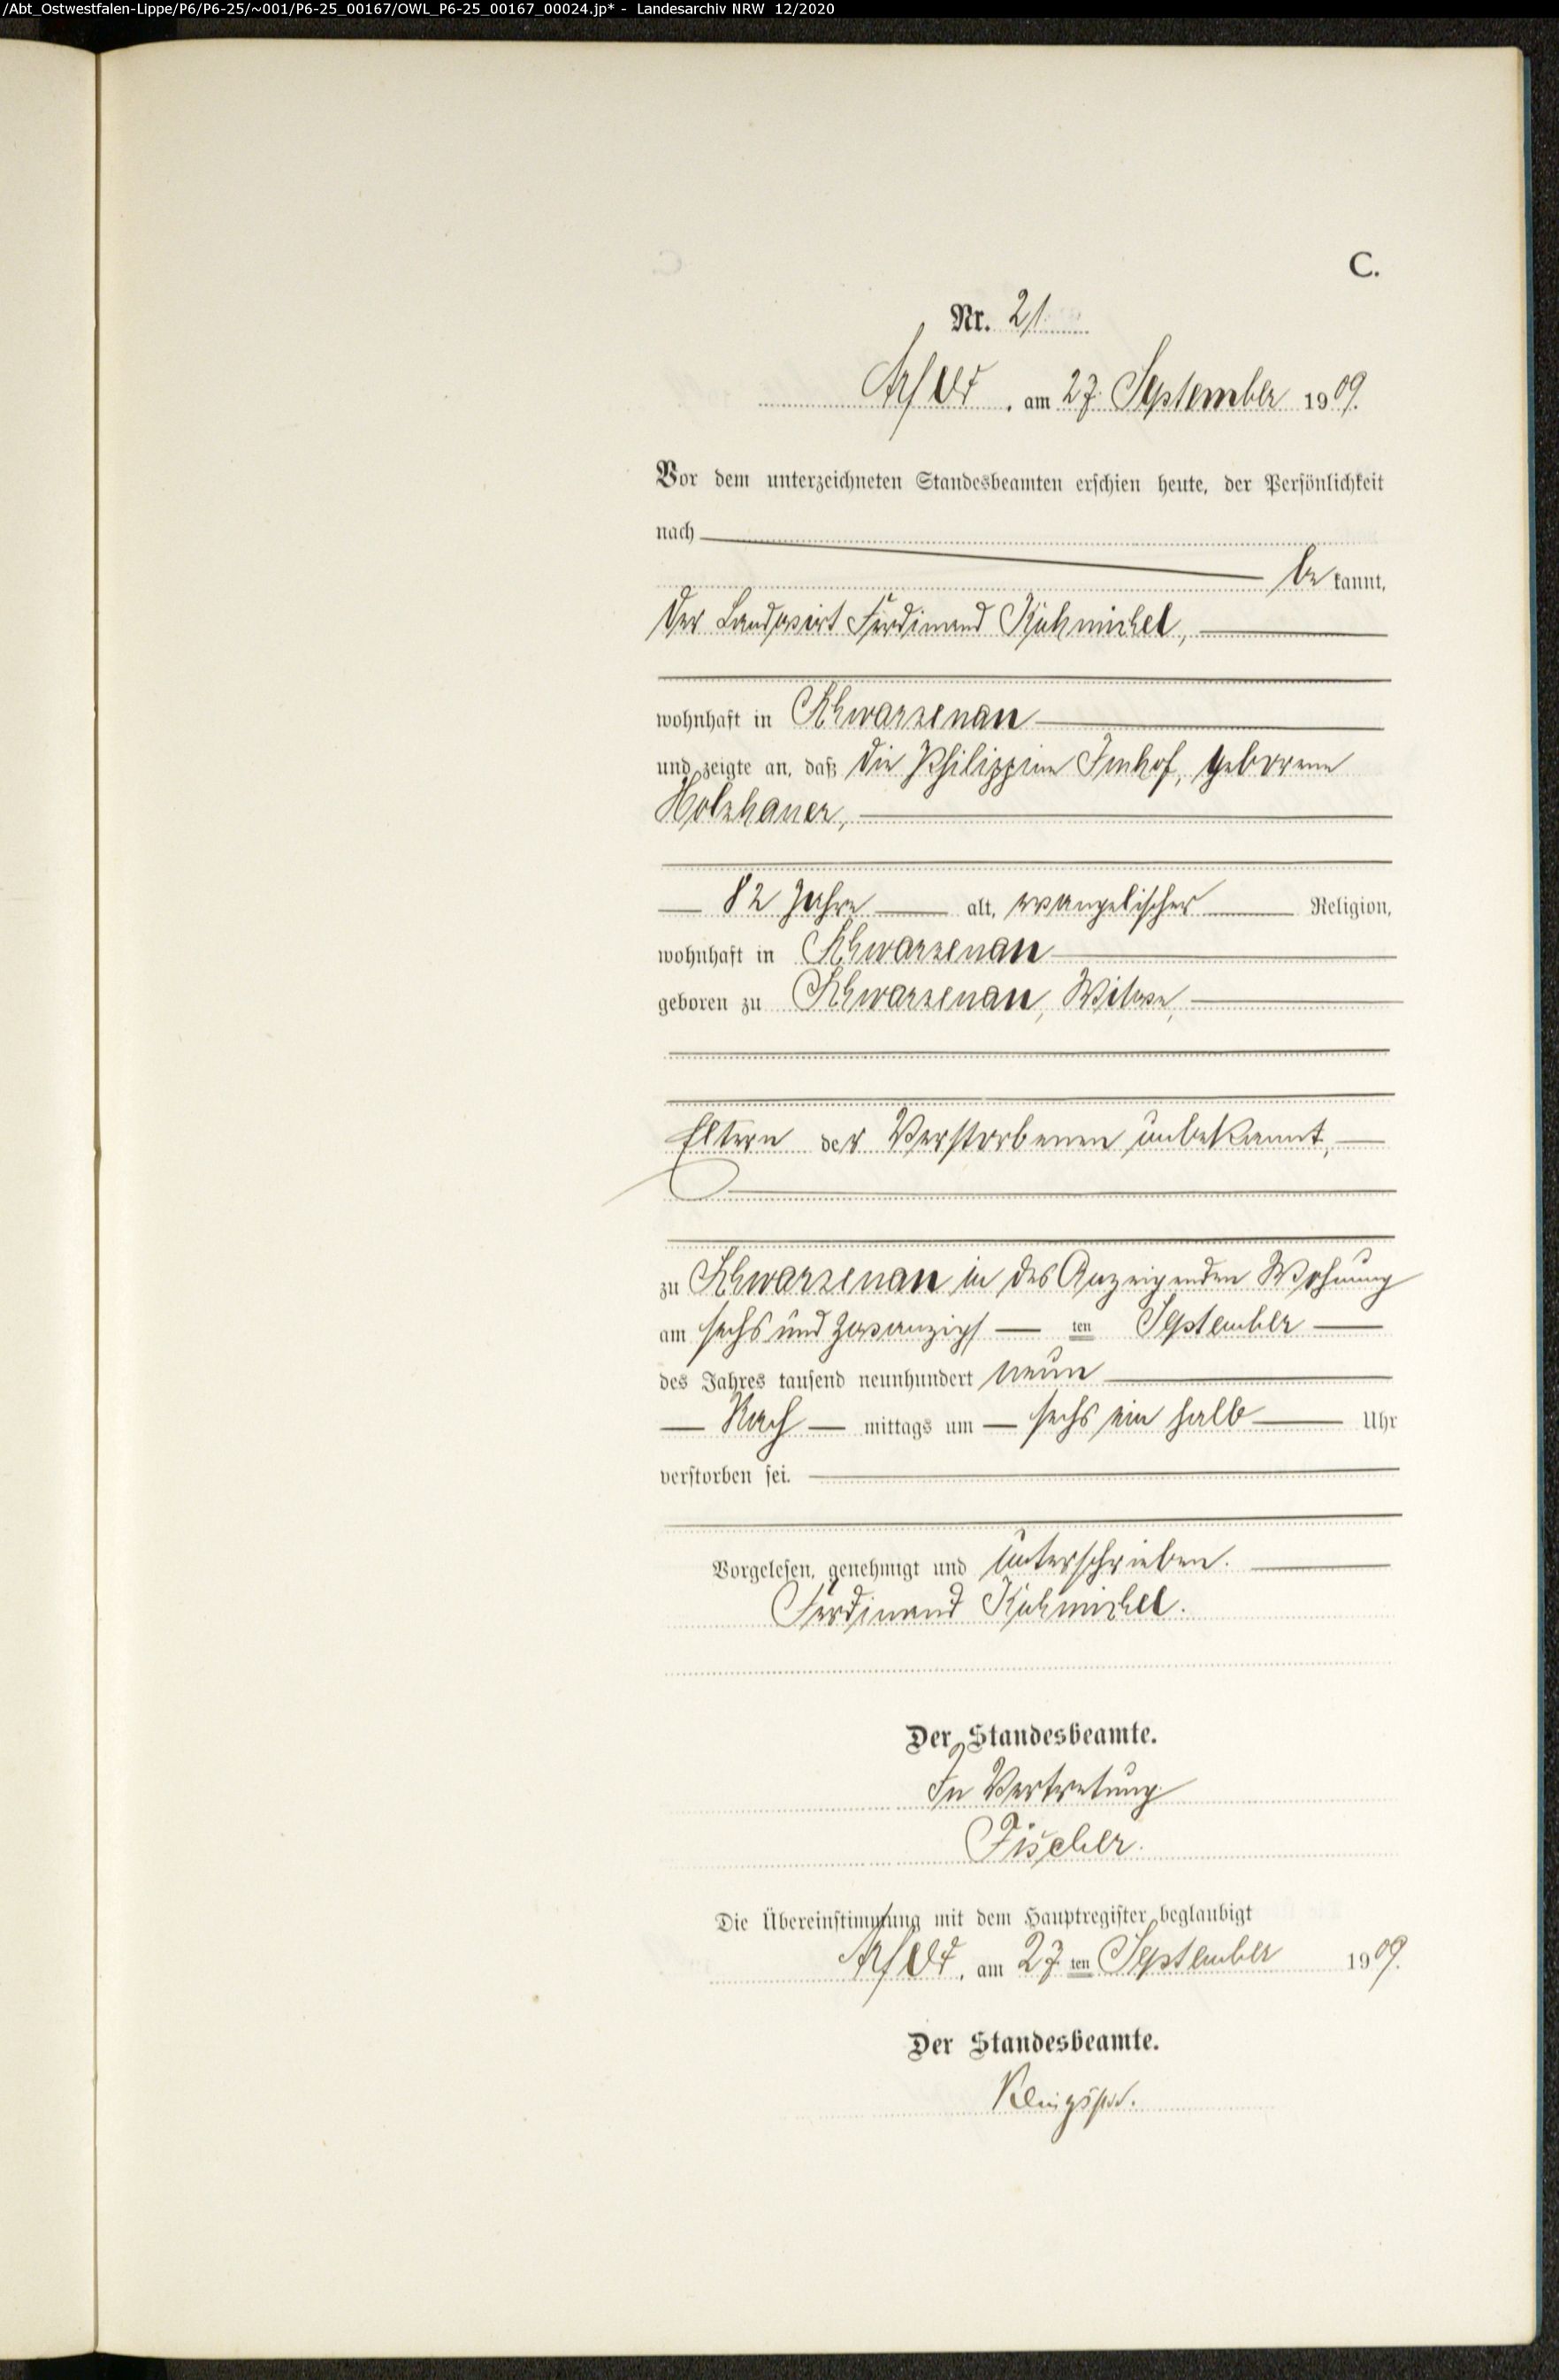 /Abt_Ostwestfalen-Lippe/P6/P6-25/~001/P6-25_00167/OWL_P6-25_00167_00024.jp* - Landesarchiv NRW 12/2020
C.
Nr. 21
Arfeld, am 27. September 1909.
Vor dem unterzeichneten Standesbeamten erschien heute, der Persönlichkeit
nach
be kannt,
der Landwirt Ferdinand Kuhmichel,
wohnhaft in Schwarzenau
und zeigte an, daß die Philippine Imhof, geborene
Holzhauer,
82 Jahre alt, evangelischer Religion,
wohnhaft in Schwarzenau
geboren zu Schwarzenau, Witwe,
Eltern der Verstorbenen unbekannt,
zu Schwarzenau in des Anzeigenden Wohnung
am sechs und zwanzigs ten September
des Jahres tausend neunhundert neun
Nach mittags um sechs ein halb Uhr
verstorben sei.
Vorgelesen, genehmigt und unterschrieben.
Ferdinand Kuhmichel.
Der Standesbeamte.
In Vertretung
Fischer.
Die Übereinstimmung mit dem Hauptregister beglaubigt
Arfeld, am 27. ten September 1909.
Der Standesbeamte.